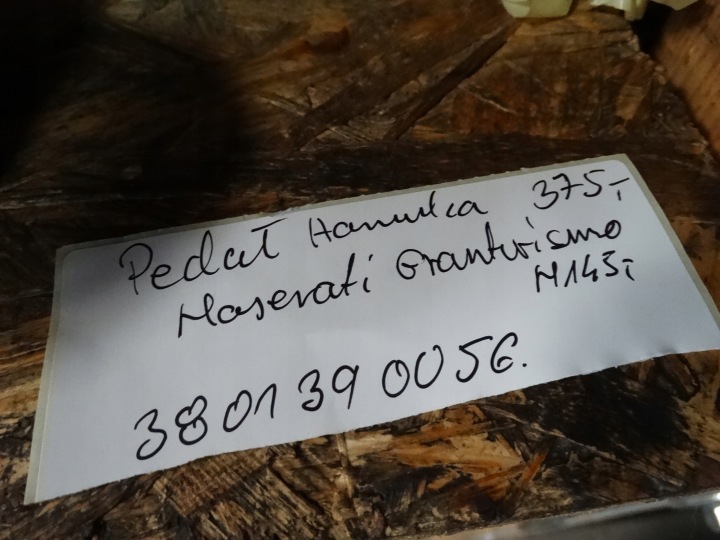 Pedał Hamulca 375,-
Maserati Granturismo
M145;
3801390056.